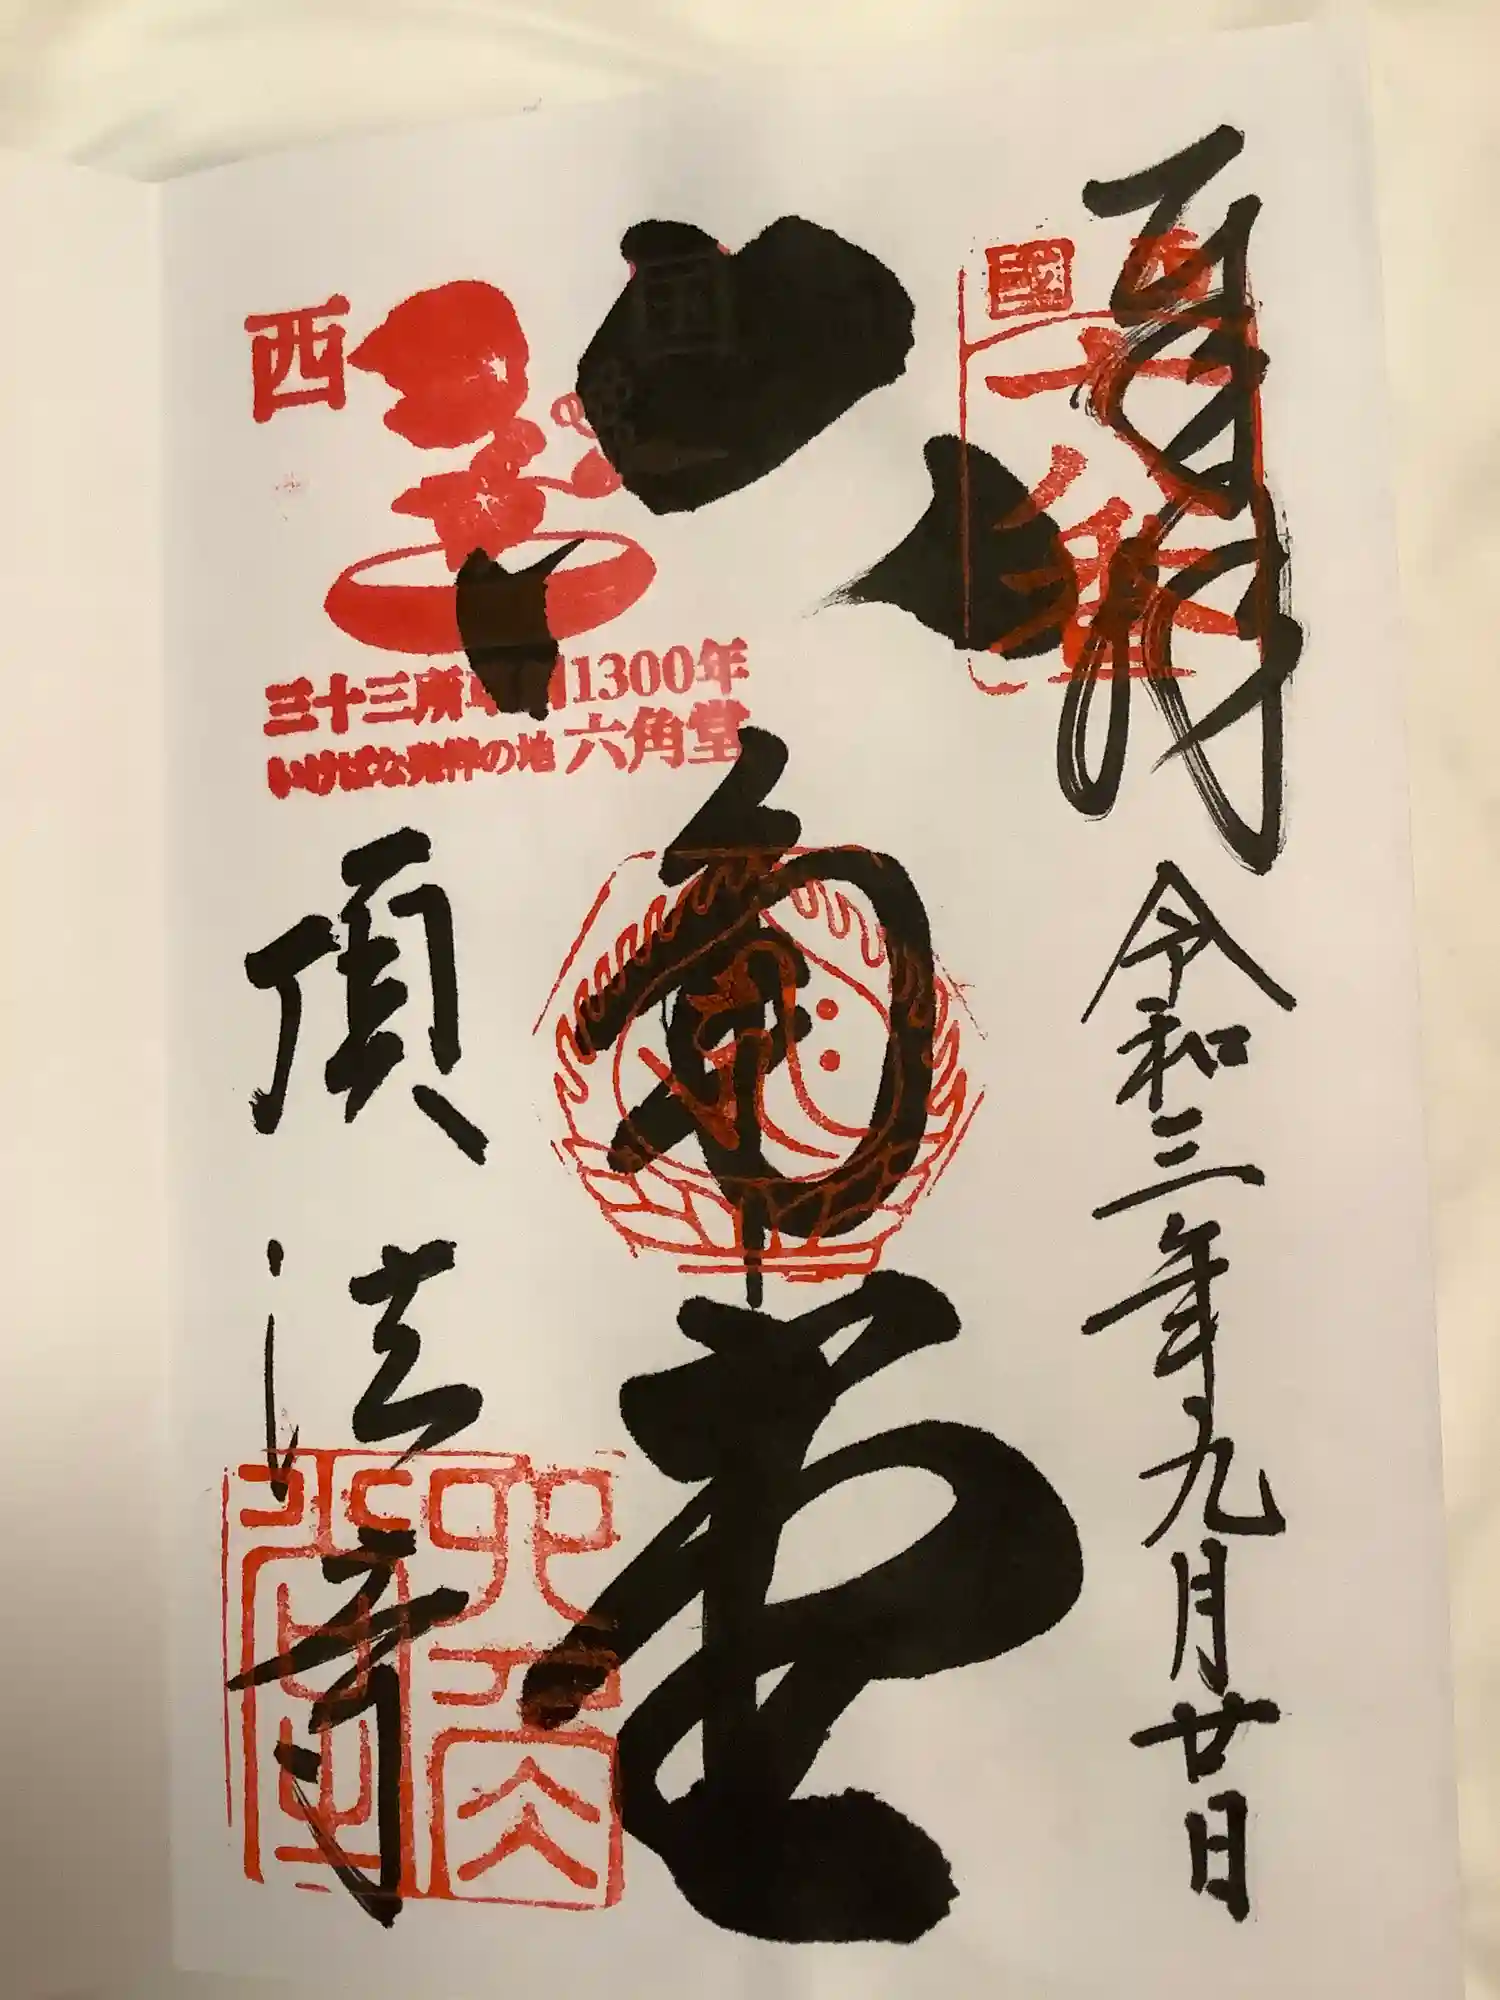 奉拝
令和三年九月廿日
西國
十八番
六角堂
西国
三十三所草創1300年
いけばな発祥の地 六角堂
頂法寺